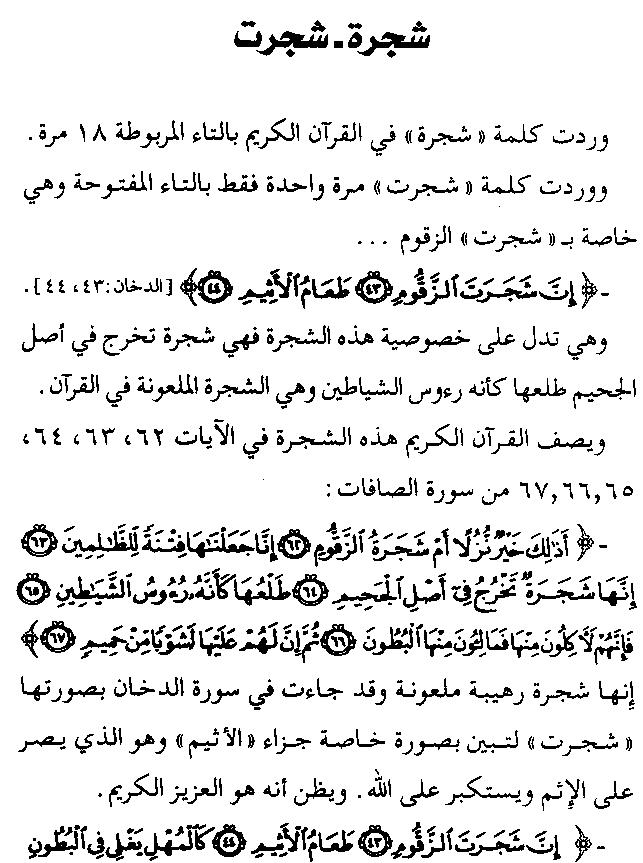 شجرة ـ شجرت
وردت كلمة « شجرة » في القرآن الكريم بالتاء المربوطة ١٨ مرة .
ووردت كلمة « شجرت » مرة واحدة فقط بالتاء المفتوحة وهي
خاصة بـ « شجرت » الزقوم ...
- ﴿ إِنَّ شَجَرَتَ ٱلزَّقُّومِ ﴿٤٣﴾ طَعَامُ ٱلْأَثِيمِ ﴿٤٤﴾ ﴾ [الدخان : ٤٣، ٤٤] .
وهي تدل على خصوصية هذه الشجرة فهي شجرة تخرج في أصل
الجحيم طلعها كأنه رءوس الشياطين وهي الشجرة الملعونة في القرآن .
ويصف القرآن الكريم هذه الشجرة في الآيات ٦٢، ٦٣، ٦٤،
٦٥,٦٦,٦٧ من سورة الصافات :
- ﴿ أَذَٰلِكَ خَيْرٌ نُّزُلًا أَمْ شَجَرَةُ ٱلزَّقُّومِ ﴿٦٢﴾ إِنَّا جَعَلْنَٰهَا فِتْنَةً لِّلظَّٰلِمِينَ ﴿٦٣﴾
إِنَّهَا شَجَرَةٌ تَخْرُجُ فِىٓ أَصْلِ ٱلْجَحِيمِ ﴿٦٤﴾ طَلْعُهَا كَأَنَّهُۥ رُءُوسُ ٱلشَّيَٰطِينِ ﴿٦٥﴾
فَإِنَّهُمْ لَءَاكِلُونَ مِنْهَا فَمَالِـُٔونَ مِنْهَا ٱلْبُطُونَ ﴿٦٦﴾ ثُمَّ إِنَّ لَهُمْ عَلَيْهَا لَشَوْبًا مِّنْ حَمِيمٍ ﴿٦٧﴾ ﴾
إنها شجرة رهيبة ملعونة وقد جاءت في سورة الدخان بصورتها
« شجرت » لتبين بصورة خاصة جزاء « الأثيم » وهو الذي يصر
على الإثم ويستكبر على الله . ويظن أنه هو العزيز الكريم .
- ﴿ إِنَّ شَجَرَتَ ٱلزَّقُّومِ ﴿٤٣﴾ طَعَامُ ٱلْأَثِيمِ ﴿٤٤﴾ كَٱلْمُهْلِ يَغْلِى فِى ٱلْبُطُونِ